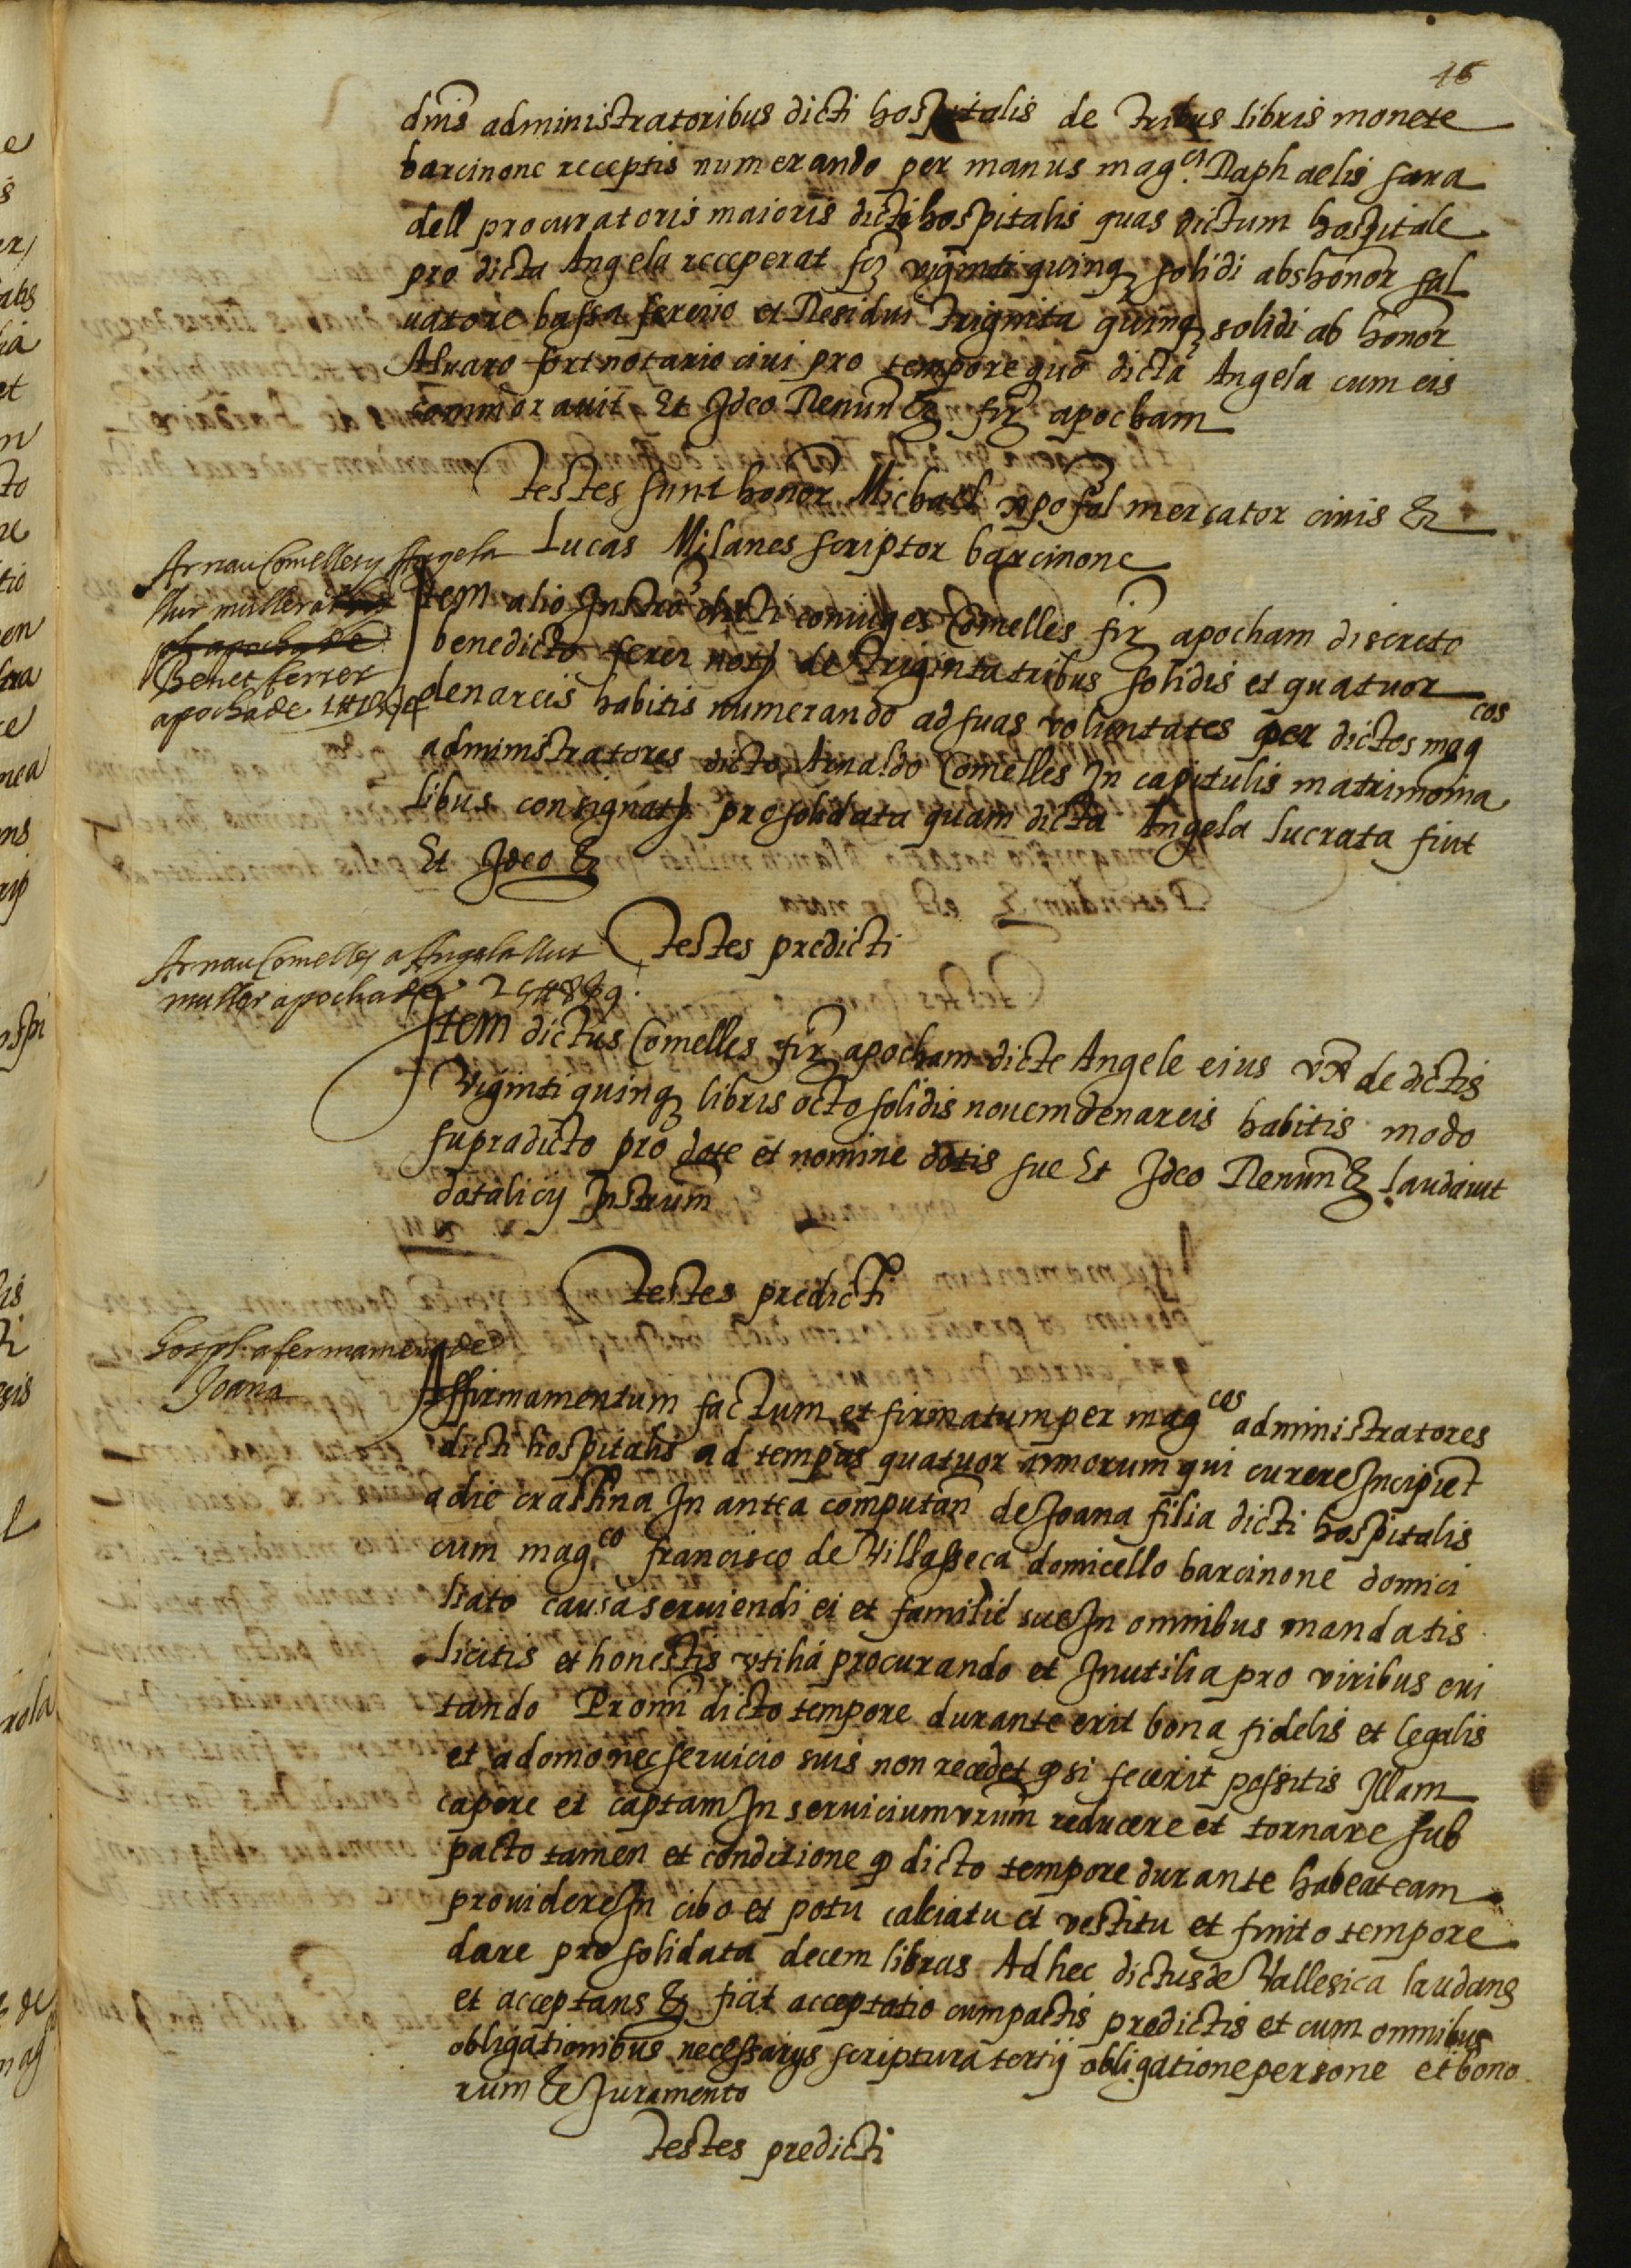 46
dnis administratoribus dicti hospitalis de tribus libris monete
barcinone receptis numerando per manus mag.ci Raphaelis sara
dell procuratoris maioris dicti hospitalis quas dictum hospitale
pro dicta Angela receperat sz viginti quinq solidi ab honor sal
uatore bassa ferrerio et Residui triginta quinq solidi ab honor
Aluaro fort notario ciui pro tempore quo dicta Angela cum eis
commorauit Et Ideo Renun &c fir apocham
Testes sunt honor Michael xpofol mercator ciuis &
Lucas Milanes scriptor barcinone
Arnau Comelles y Angela
llur muller
Benet ferrer
apocha de
Item alio Instro dicti coniuges Comelles fir apocham discreto
benedicto ferrer not de triginta tribus solidis et quatuor
denareis habitis numerando ad suas voluntates per dictos mag cos
administratores dicto Arnaldo Comelles In capitulis matrimonia
libus consignat pro solidata quam dicta Angela lucrata fuit
Et Ideo &
Testes predicti
Arnau Comelles a Angela llur
muller apocha de 25 ll 8 s 9
Item dictus Comelles fir apocham dicte Angele eius vxi de dictis
Viginti quinq libris octo solidis nouem denareis habitis modo
supradicto pro dote et nomine dotis sue Et Ideo Renun & laudarut
dotalicij Instrum
Testes predicti
hospl. afermament de
Joana
Affirmamentum factum et firmatum per mag cos administratores
dicti hospitalis ad tempus quatuor annorum qui curere Incipiet
a die crastina In antea computan de Joana filia dicti hospitalis
cum mag.co francisco de Villasseca domicello barcinone domici
liato causa seruiendi ei et familie sue In omnibus mandatis
licitis et honestis vtilia procurando et Inutilia pro viribus eui
tando Promi dicto tempore durante erit bona fidelis et legalis
et a domo nec seruicio suis non recedet q si fecerit possitis Illam
capere et captam In seruicium vrum reducere et tornare sub
pacto tamen et conditione q dicto tempore durante habeat eam
prouidere In cibo et potu calciatu et vestitu et finito tempore
dare pro solidata decem libras Ad hec dictus de Vallesica laudans
et acceptans & fiat acceptatio cum pactis predictis et cum omnibus
obligationibus necessarijs scriptura tertij obligatione persone et bono
rum & Juramento
Testes predicti